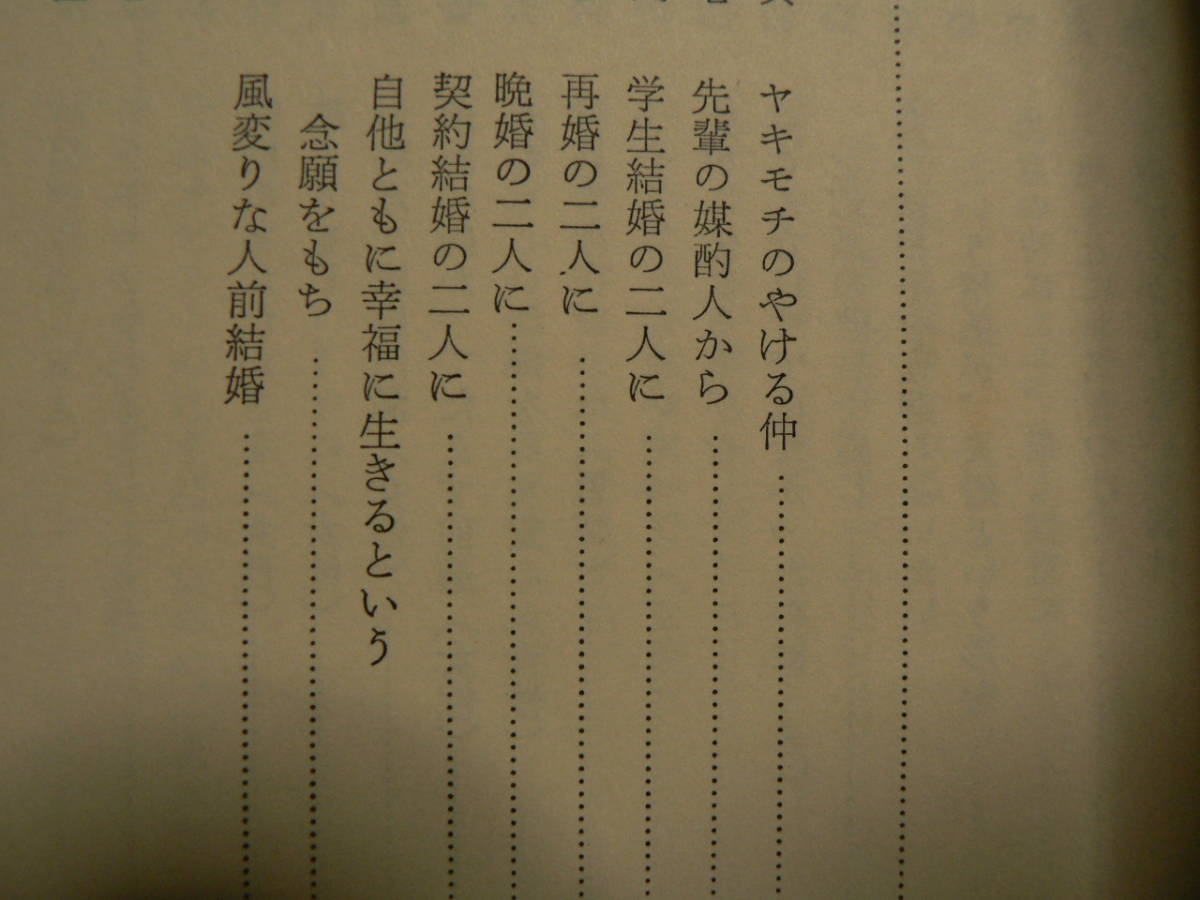 ヤキモチのやける仲
先輩の媒酌人から
学生結婚の二人に
再婚の二人に
晩婚の二人に
契約結婚の二人に
自他ともに幸福に生きるという
念願をもち
風変りな人前結婚